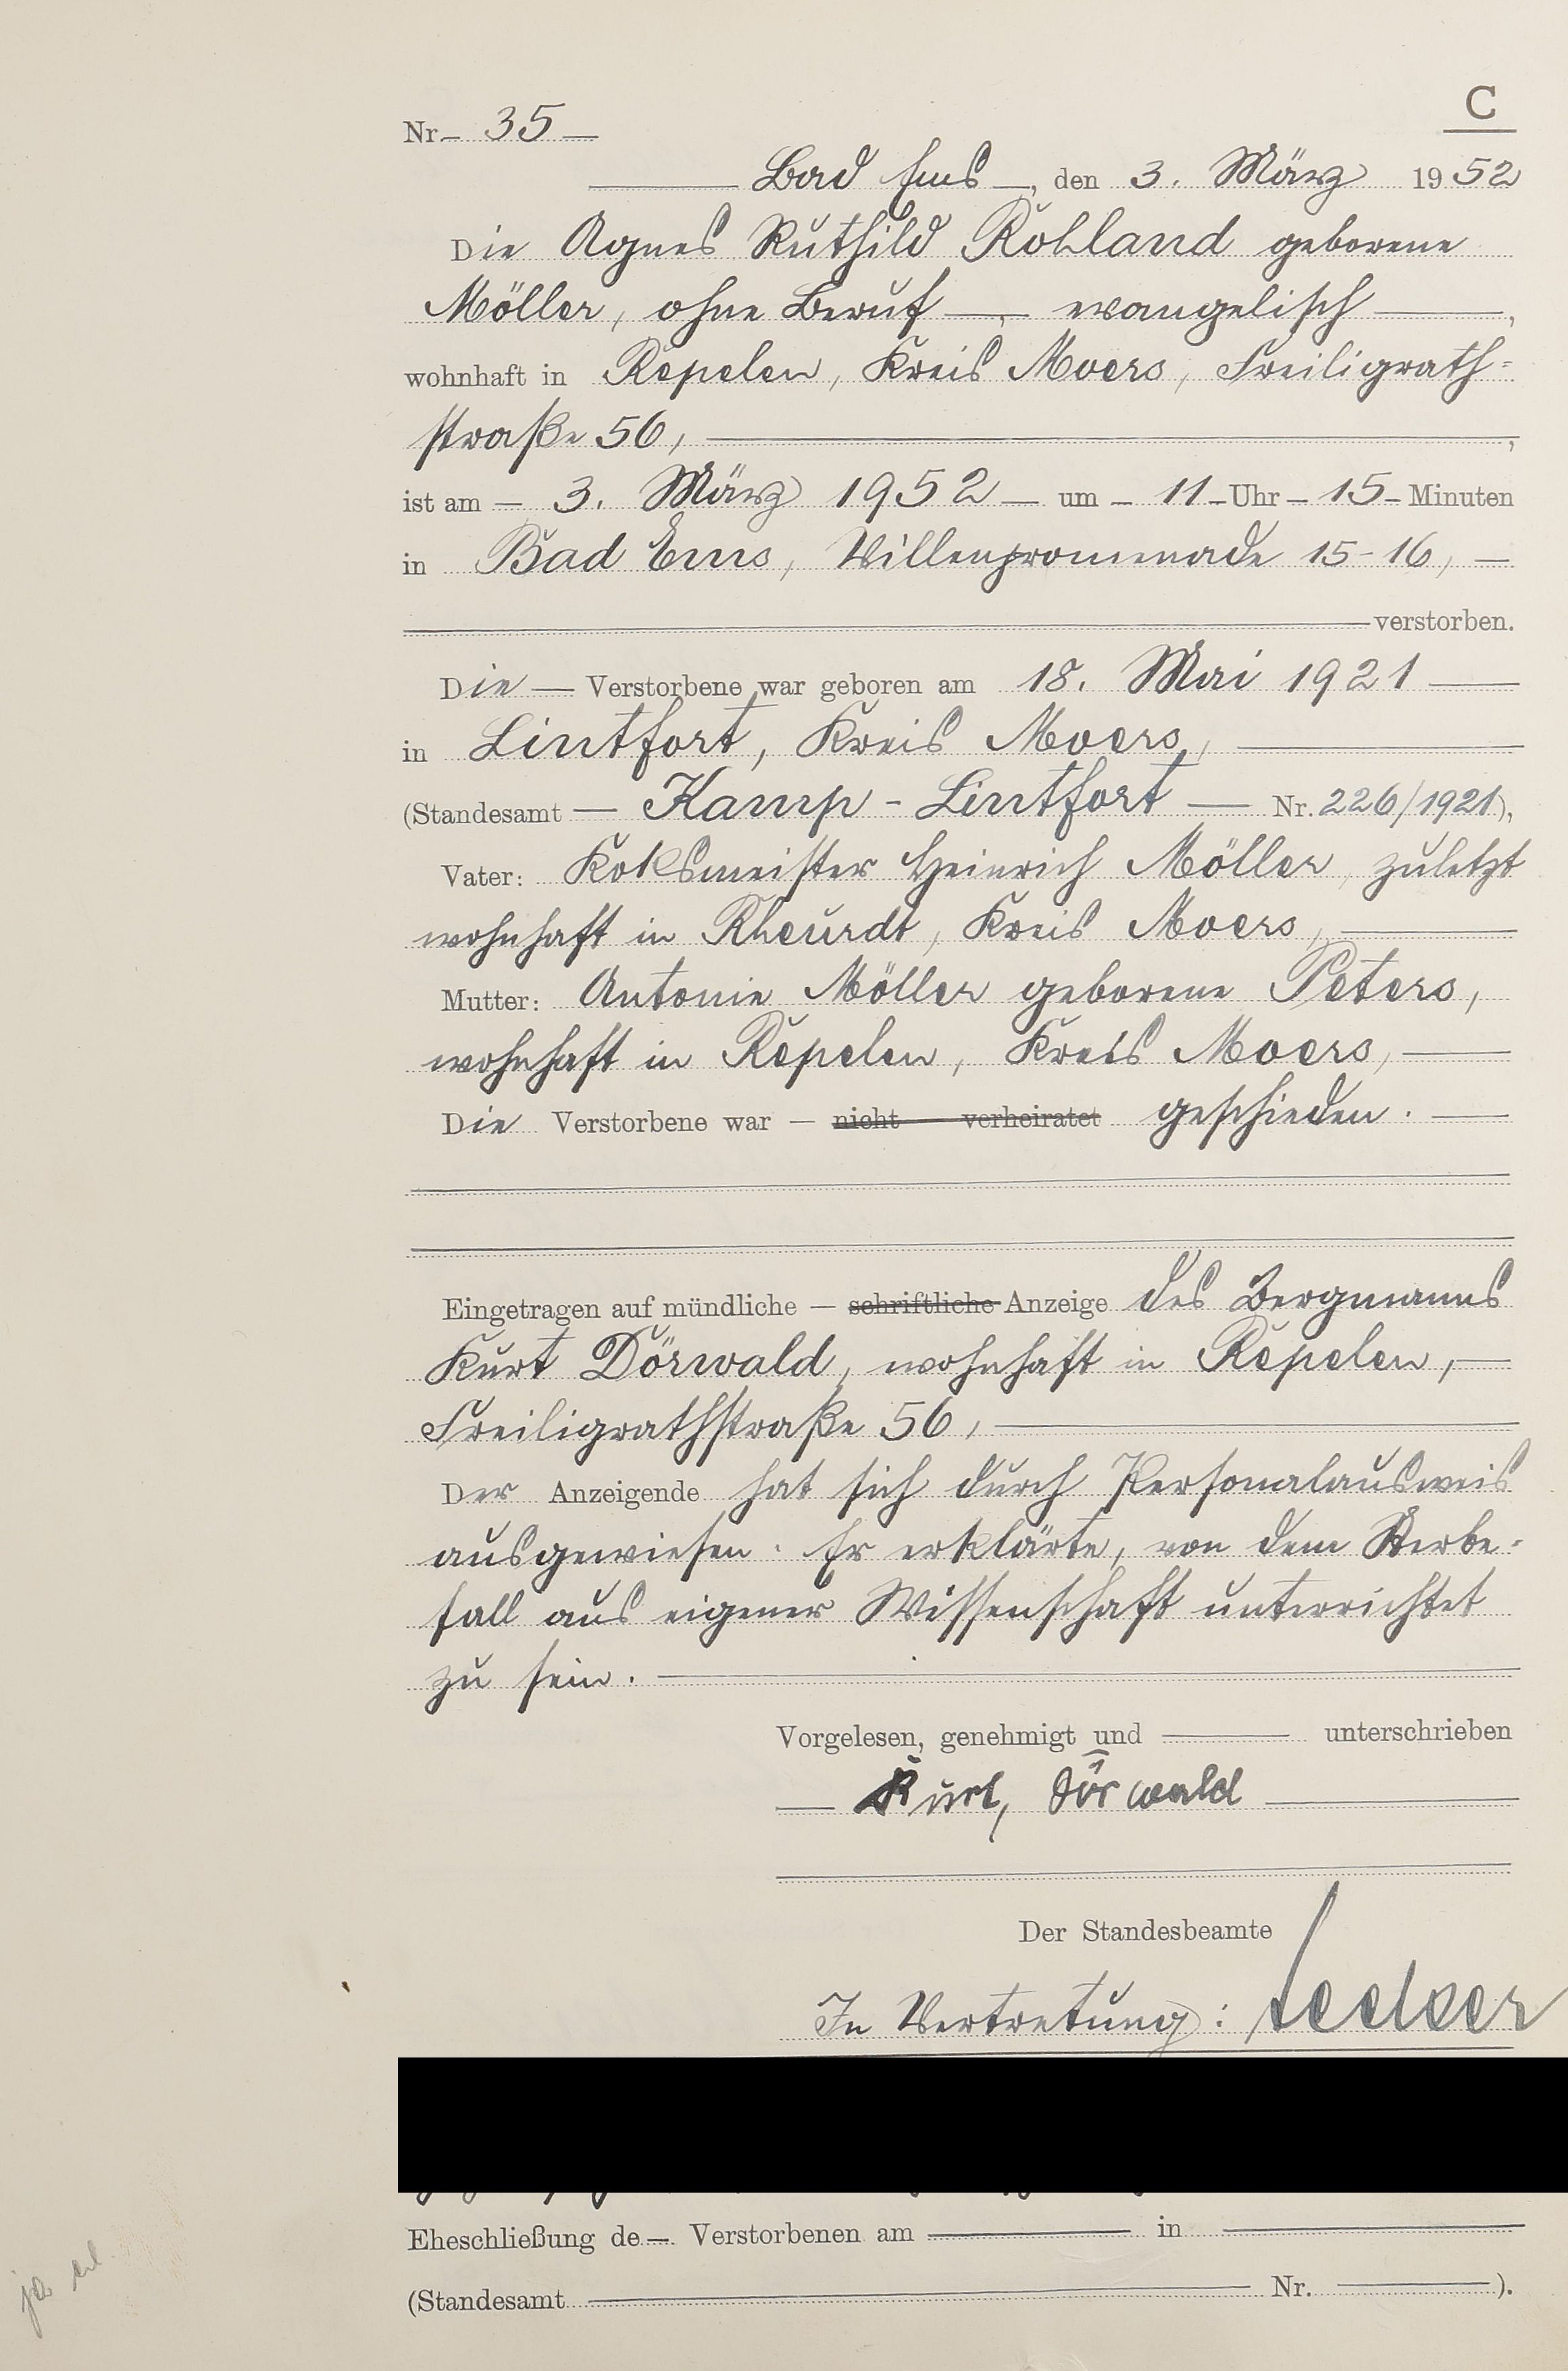 C
Nr. 35
Bad Ems, den 3. März 1952
Die Agnes Ruthild Rohland geborene
Möller, ohne Beruf, evangelisch,
wohnhaft in Repelen, Kreis Moers, Freiligrath-
straße 56,
ist am 3. März 1952 um 11 Uhr 15 Minuten
in Bad Ems, Villenpromenade 15-16,
verstorben.
Die Verstorbene war geboren am 18. Mai 1921
in Lintfort, Kreis Moers,
(Standesamt Kamp-Lintfort Nr. 226/1921),
Vater: Koksmeister Heinrich Möller, zuletzt
wohnhaft in Rheurdt, Kreis Moers,
Mutter: Antonie Möller geborene Peters,
wohnhaft in Repelen, Kreis Moers,
Die Verstorbene war — nicht verheiratet geschieden.
Eingetragen auf mündliche — schriftliche Anzeige des Bergmanns
Kurt Dörwald, wohnhaft in Repelen,
Freiligrathstraße 56,
Der Anzeigende hat sich durch Personalausweis
ausgewiesen. Er erklärte, von dem Sterbe-
fall aus eigener Wissenschaft unterrichtet
zu sein.
Vorgelesen, genehmigt und unterschrieben
Kurt, Dörwald
Der Standesbeamte
In Vertretung:
Eheschließung de Verstorbenen am in
(Standesamt Nr. ).